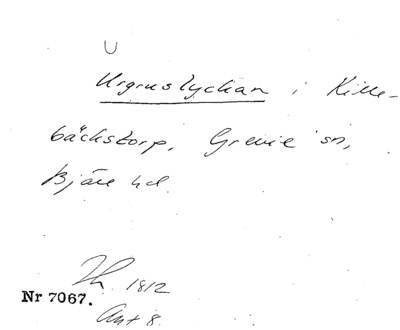 U
Urgruslyckan i Kille-
bäckstorp, Grevie sn,
Bjäre hd.
1812
Nr 7067.
Akt 8.